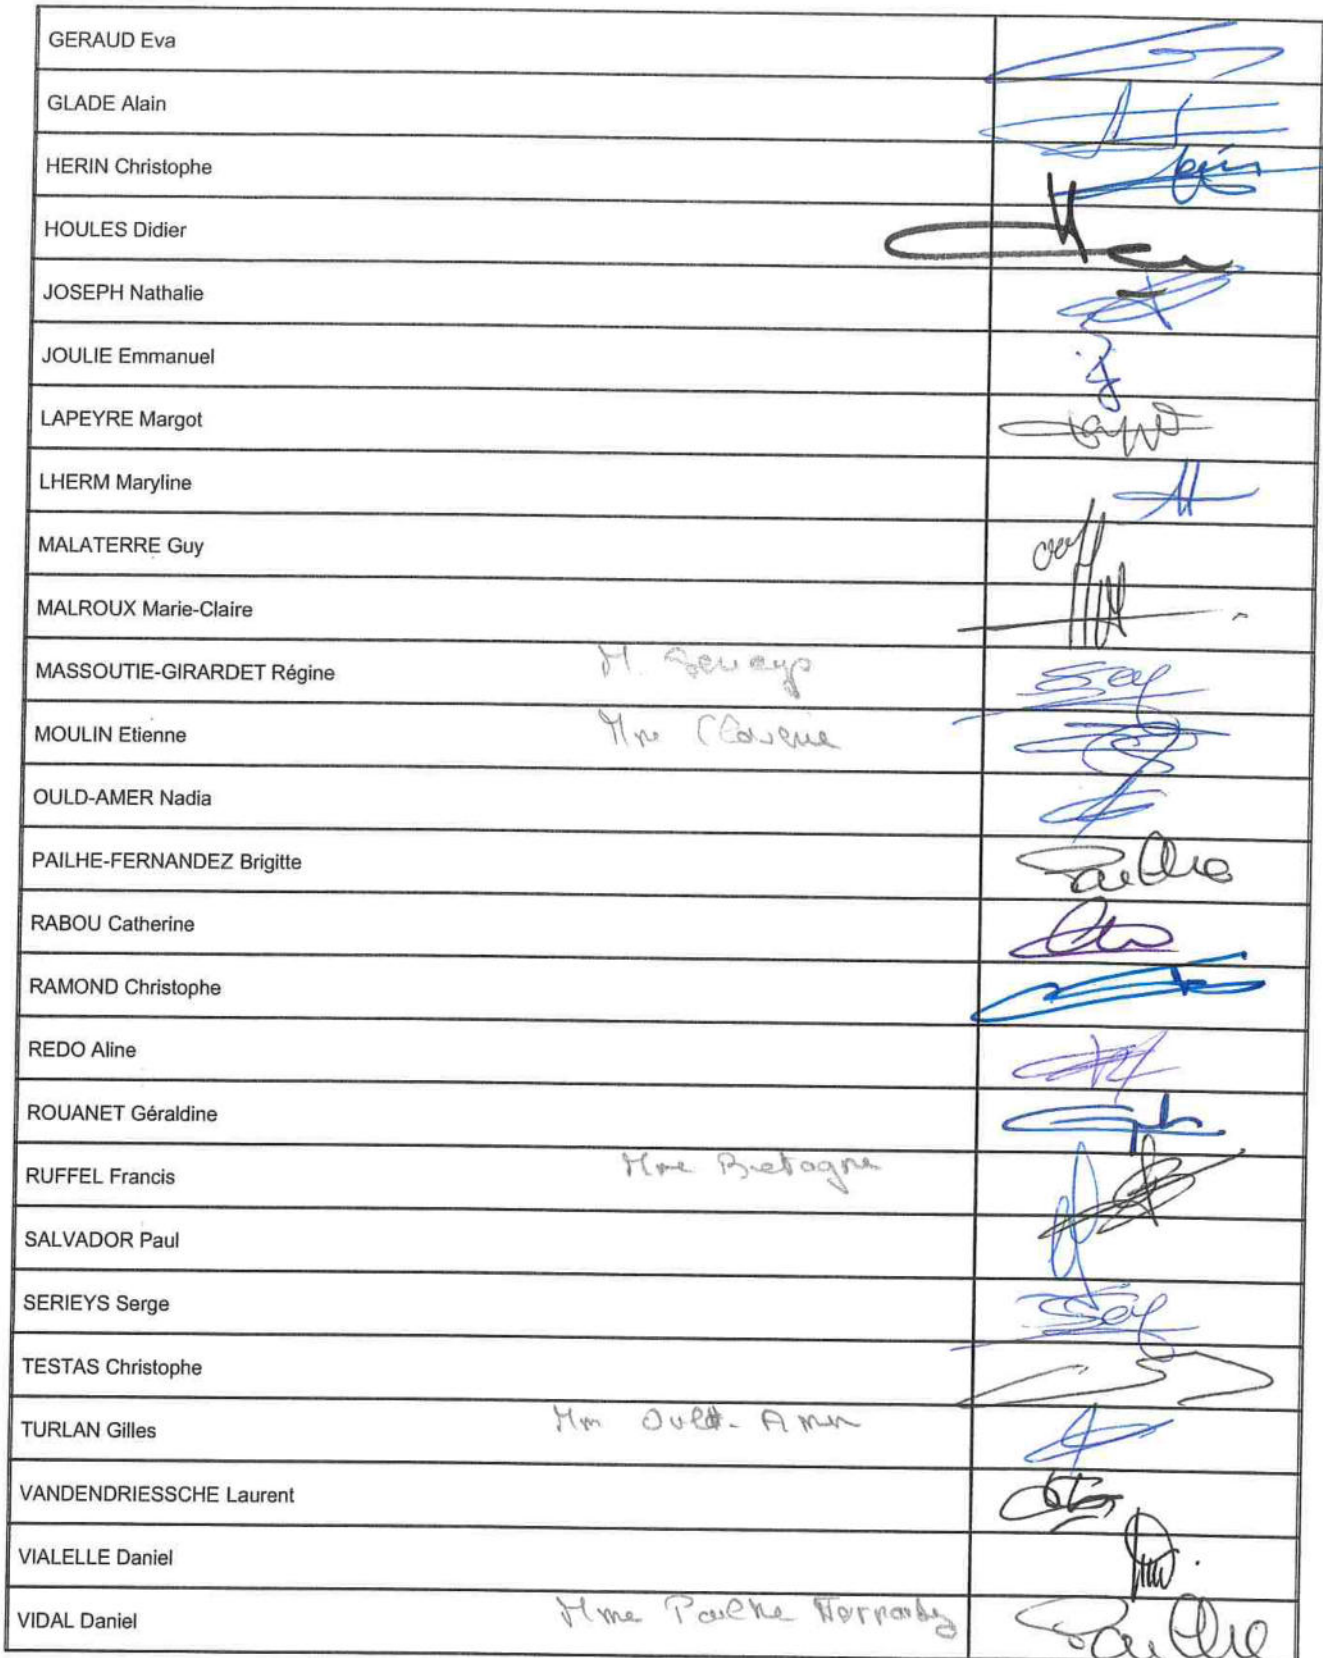 GERAUD Eva
GLADE Alain
HERIN Christophe
HOULES Didier
JOSEPH Nathalie
JOULIE Emmanuel
LAPEYRE Margot
LHERM Maryline
MALATERRE Guy
MALROUX Marie-Claire
MASSOUTIE-GIRARDET Régine M.
MOULIN Etienne Mme Claverie
OULD-AMER Nadia
PAILHE-FERNANDEZ Brigitte Pailhe
RABOU Catherine
RAMOND Christophe
REDO Aline
ROUANET Géraldine
RUFFEL Francis Mme Bretagne
SALVADOR Paul
SERIEYS Serge
TESTAS Christophe
TURLAN Gilles Mm Ould-Amer
VANDENDRIESSCHE Laurent
VIALELLE Daniel
VIDAL Daniel Mme Pailhe Pailhe